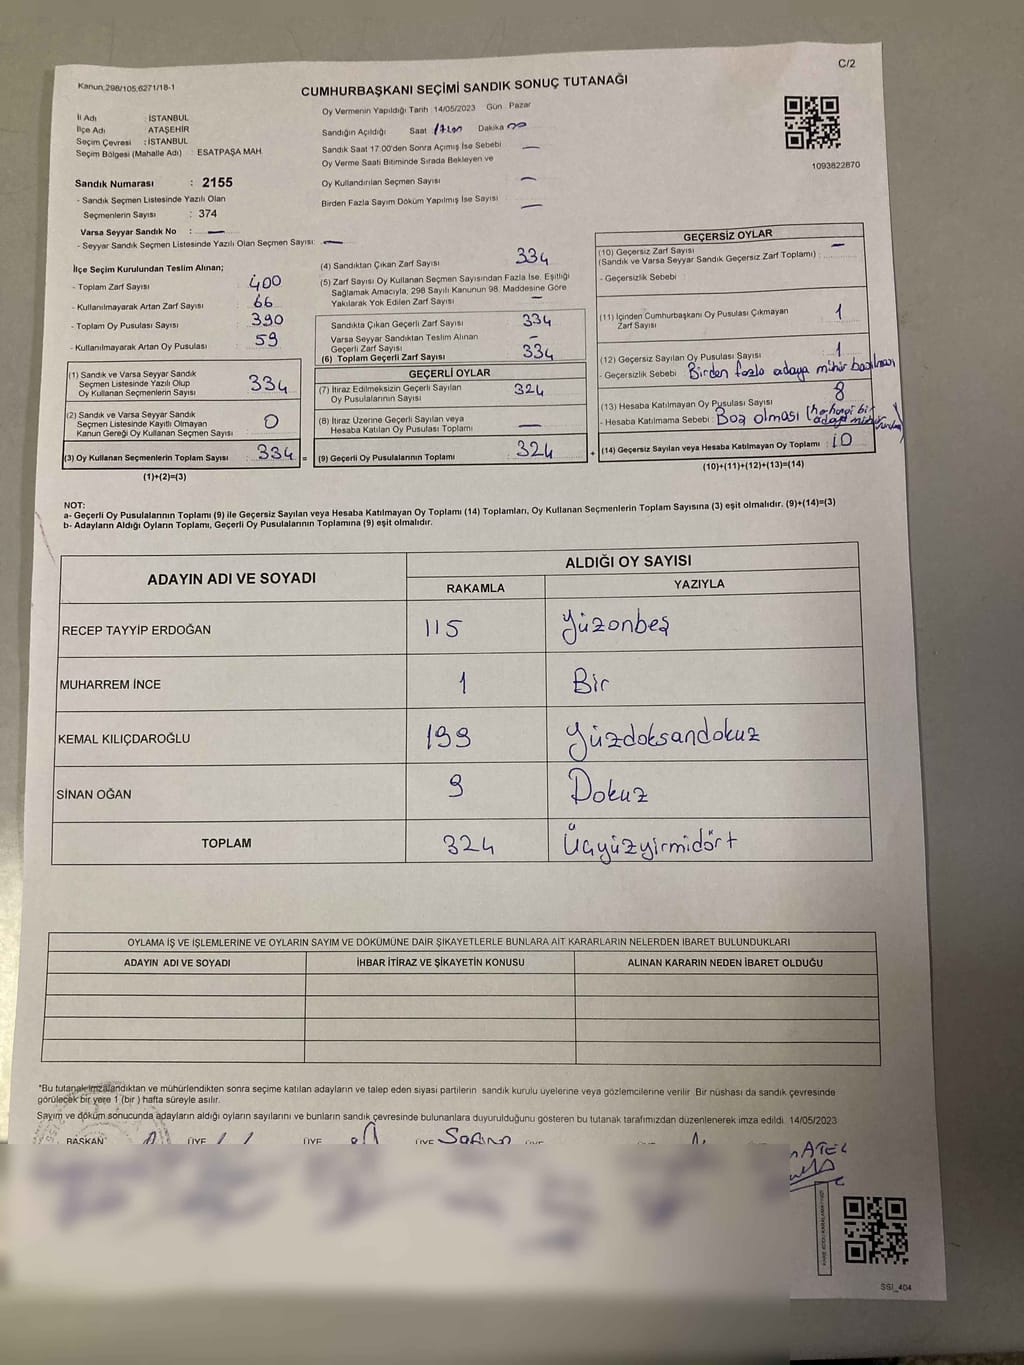 C/2
Kanun 298/105,6271/18-1
CUMHURBAŞKANI SEÇİMİ SANDIK SONUÇ TUTANAĞI
İl Adı : İSTANBUL
İlçe Adı : ATAŞEHİR
Seçim Çevresi : İSTANBUL
Seçim Bölgesi (Mahalle Adı) : ESATPAŞA MAH.
Oy Vermenin Yapıldığı Tarih 14/05/2023 Gün Pazar
Sandığın Açıldığı Saat Dakika
Sandık Saat 17:00'den Sonra Açımış İse Sebebi —
Oy Verme Saati Bitiminde Sırada Bekleyen ve
Oy Kullandırılan Seçmen Sayısı —
Birden Fazla Sayım Döküm Yapılmış İse Sayısı —
1093822870
Sandık Numarası : 2155
- Sandık Seçmen Listesinde Yazılı Olan
Seçmenlerin Sayısı : 374
Varsa Seyyar Sandık No : —
- Seyyar Sandık Seçmen Listesinde Yazılı Olan Seçmen Sayısı: —
İlçe Seçim Kurulundan Teslim Alınan;
- Toplam Zarf Sayısı : 400
- Kullanılmayarak Artan Zarf Sayısı : 66
- Toplam Oy Pusulası Sayısı : 390
- Kullanılmayarak Artan Oy Pusulası : 59
(1) Sandık ve Varsa Seyyar Sandık
Seçmen Listesinde Yazılı Olup
Oy Kullanan Seçmenlerin Sayısı : 334
(2) Sandık ve Varsa Seyyar Sandık
Seçmen Listesinde Kayıtlı Olmayan
Kanun Gereği Oy Kullanan Seçmen Sayısı : 0
(3) Oy Kullanan Seçmenlerin Toplam Sayısı : 334 =
(1)+(2)=(3)
(4) Sandıktan Çıkan Zarf Sayısı : 334
(5) Zarf Sayısı Oy Kullanan Seçmen Sayısından Fazla İse, Eşitliği
Sağlamak Amacıyla, 298 Sayılı Kanunun 98. Maddesine Göre
Yakılarak Yok Edilen Zarf Sayısı —
Sandıkta Çıkan Geçerli Zarf Sayısı : 334
Varsa Seyyar Sandıktan Teslim Alınan
Geçerli Zarf Sayısı : —
(6) Toplam Geçerli Zarf Sayısı : 334
GEÇERLİ OYLAR
(7) İtiraz Edilmeksizin Geçerli Sayılan
Oy Pusulasının Sayısı : 324
(8) İtiraz Üzerine Geçerli Sayılan veya
Hesaba Katılan Oy Pusulası Toplamı : —
(9) Geçerli Oy Pusulalarının Toplamı : 324 +
GEÇERSİZ OYLAR
(10) Geçersiz Zarf Sayısı
(Sandık ve Varsa Seyyar Sandık Geçersiz Zarf Toplamı) : —
- Geçersizlik Sebebi :
(11) İçinden Cumhurbaşkanı Oy Pusulası Çıkmayan
Zarf Sayısı : 1
(12) Geçersiz Sayılan Oy Pusulası Sayısı : 1
- Geçersizlik Sebebi : Birden fazla adaya mühür basılması
(13) Hesaba Katılmayan Oy Pusulası Sayısı : 8
- Hesaba Katılmama Sebebi : Boş olması (herhangi bir
(14) Geçersiz Sayılan veya Hesaba Katılmayan Oy Toplamı : 10
(10)+(11)+(12)+(13)=(14)
NOT:
a- Geçerli Oy Pusulalarının Toplamı (9) ile Geçersiz Sayılan veya Hesaba Katılmayan Oy Toplamı (14) Toplamları, Oy Kullanan Seçmenlerin Toplam Sayısına (3) eşit olmalıdır. (9)+(14)=(3)
b- Adayların Aldığı Oyların Toplamı, Geçerli Oy Pusulalarının Toplamına (9) eşit olmalıdır.
ADAYIN ADI VE SOYADI ALDIĞI OY SAYISI
RAKAMLA YAZIYLA
RECEP TAYYİP ERDOĞAN 115 Yüzonbeş
MUHARREM İNCE 1 Bir
KEMAL KILIÇDAROĞLU 199 Yüzdoksandokuz
SİNAN OĞAN 9 Dokuz
TOPLAM 324 Üçyüzyirmidört
OYLAMA İŞ VE İŞLEMLERİNE VE OYLARIN SAYIM VE DÖKÜMÜNE DAİR ŞİKAYETLERLE BUNLARA AİT KARARLARIN NELERDEN İBARET BULUNDUKLARI
ADAYIN ADI VE SOYADI İHBAR İTİRAZ VE ŞİKAYETİN KONUSU ALINAN KARARIN NEDEN İBARET OLDUĞU
*Bu tutanak imzalandıktan ve mühürlendikten sonra seçime katılan adayların ve talep eden siyasi partilerin sandık kurulu üyelerine veya gözlemcilerine verilir. Bir nüshası da sandık çevresinde
görülecek bir yere 1 (bir ) hafta süreyle asılır.
Sayım ve döküm sonucunda adayların aldığı oyların sayılarını ve bunların sandık çevresinde bulunanlara duyurulduğunu gösteren bu tutanak tarafımızdan düzenlenerek imza edildi. 14/05/2023
BAŞKAN ÜYE ÜYE ÜYE
SSI_404